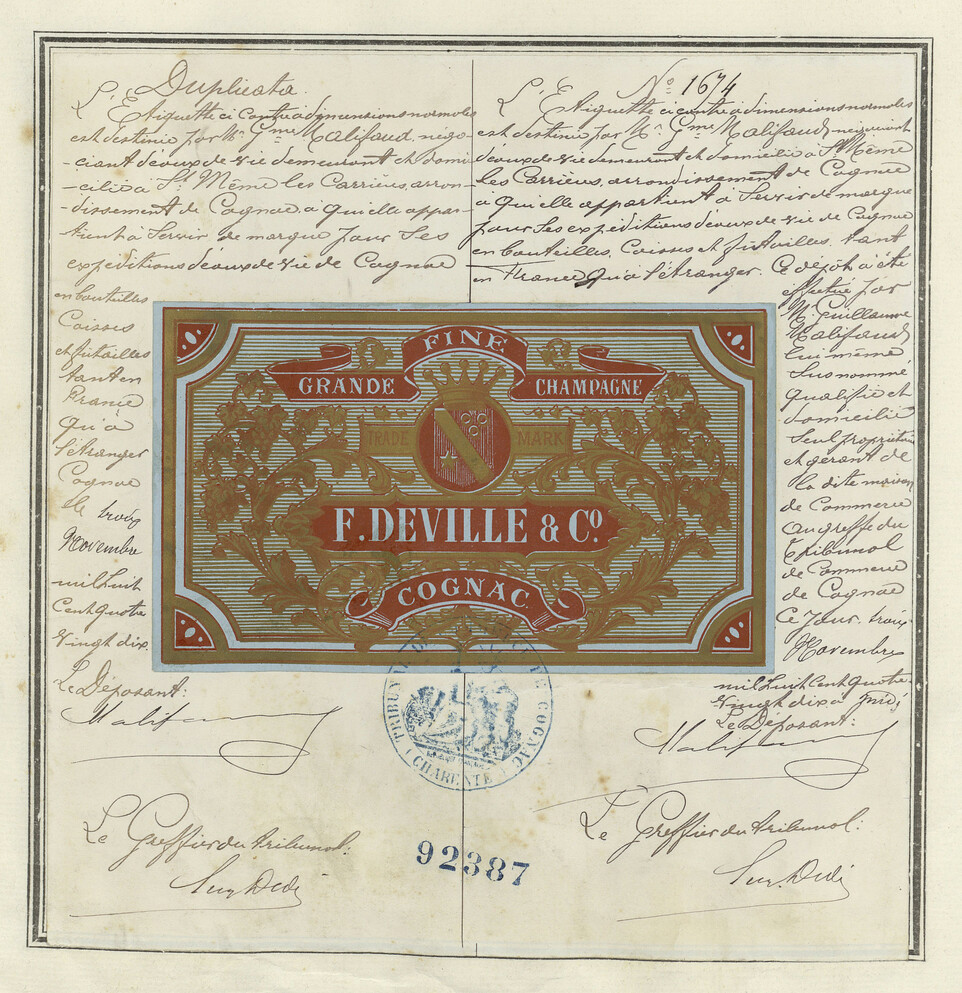 Duplicata.
L'Etiquette ci contre à dimensions normales
est destinée par Mr Gme Malifaud, négo-
-ciant d'eaux de vie demeurant et domi
-cilié à St Même les Carrières, arron-
-dissement de Cognac, à qui elle appar-
tient à Servir de marque pour Ses
expéditions d'eaux de vie de Cognac
en bouteilles
Caisses
et futailles
tant en
France
qu'à
l'étranger
Cognac
le trois
Novembre
mil huit
Cent quatre
vingt dix.
Le Déposant:
Malifaud
Le Greffier du tribunal:
No 1674
L'Etiquette ci contre à dimensions normales
est destinée par Mr Gme Malifaud, négociant
d'eaux de vie demeurant et domicilié à St Même
les Carrières, arrondissement de Cognac
à qui elle appartient à Servir de marque
pour Ses expéditions d'eaux de vie de Cognac
en bouteilles, Caisses et futailles, tant
en France qu'à l'étranger. Ce dépôt a été
effectué par
M. Guillaume
Malifaud
lui même
Susnommé
qualifié et
domicilié
Seul propriétaire
et gérant de
la dite maison
de Commerce
au greffe du
Tribunal
de Commerce
de Cognac
Ce jour trois
Novembre
mil huit cent quatre
vingt dix à midi
Le Déposant:
Malifaud
Le Greffier du tribunal:
FINE
GRANDE CHAMPAGNE
TRADE MARK
F. DEVILLE & Co.
COGNAC
TRIBUNAL DE COMMERCE DE COGNAC
(CHARENTE)
92387